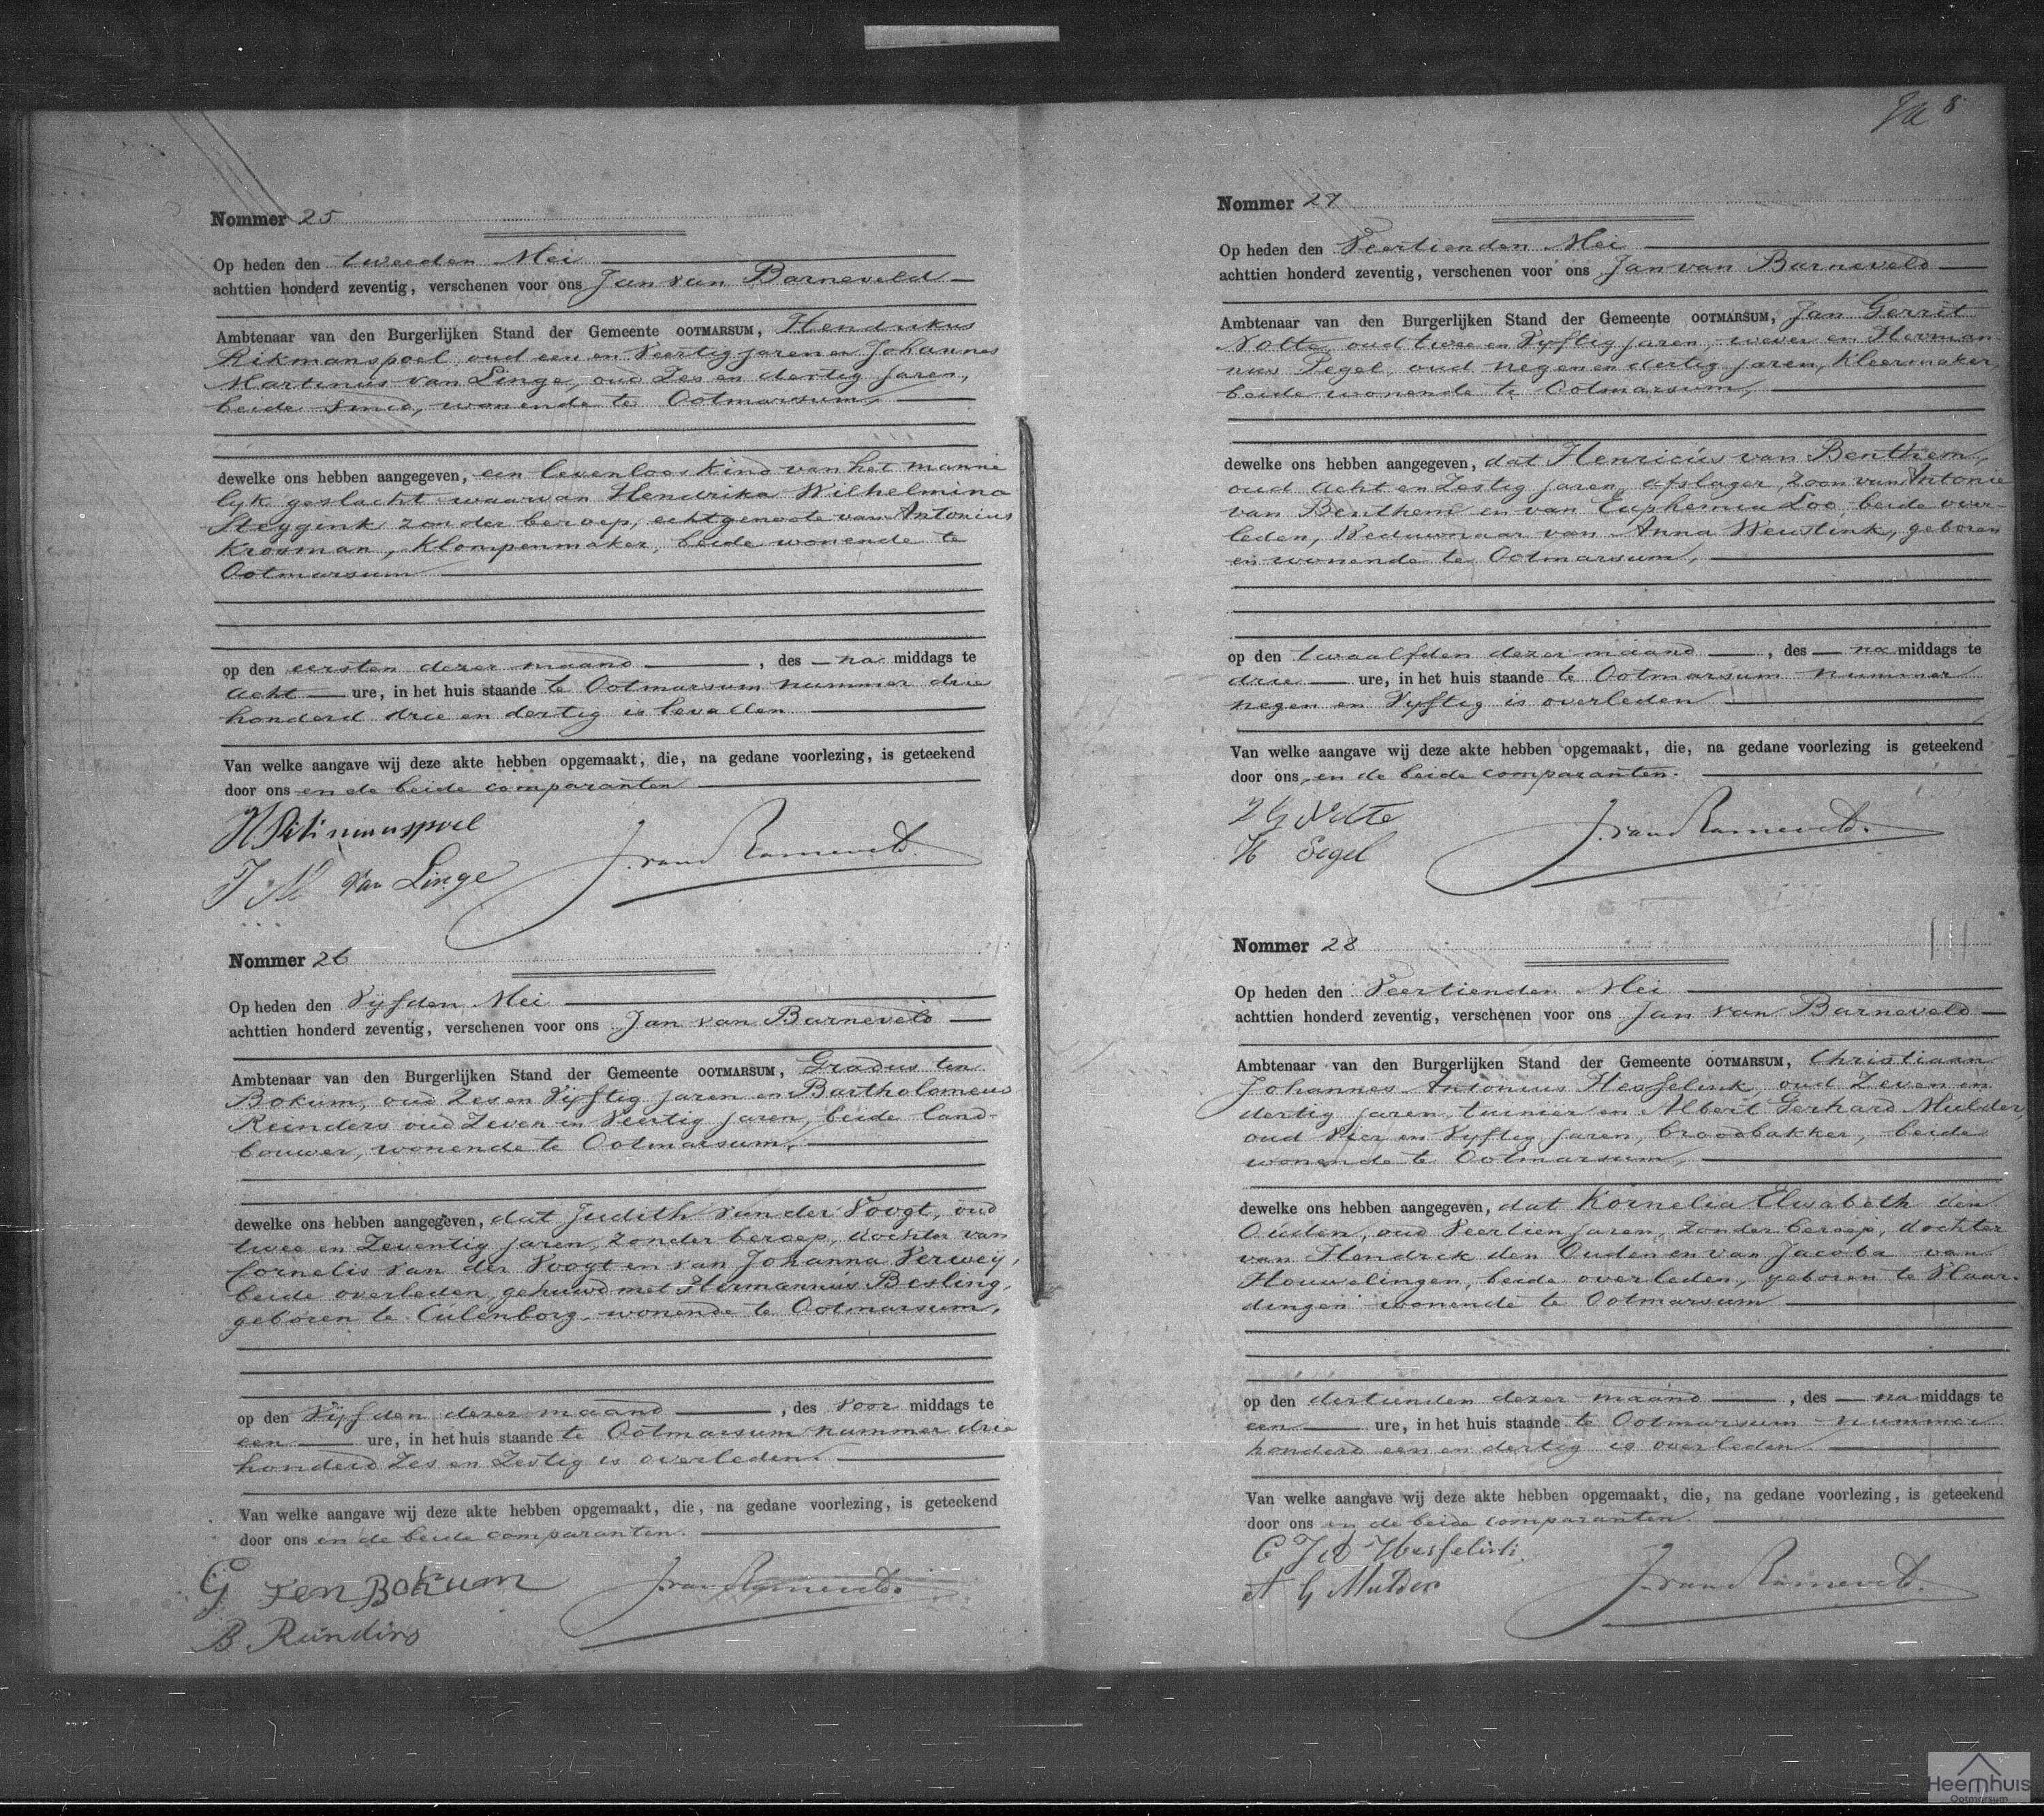 8
Nommer 25
Op heden den tweeden Mei
achttien honderd zeventig, verschenen voor ons Jan van Barneveld
Ambtenaar van den Burgerlijken Stand der Gemeente OOTMARSUM, Hendrikus
Rikmanspoel oud een en Veertig jaren en Johannes
Martinus van Linge, oud Zes en dertig jaren,
beide Smid, wonende te Ootmarsum,
dewelke ons hebben aangegeven, een levenloos kind van het manne
lyk geslacht waarvan Hendrika Wilhelmina
Steggink zonder beroep, echtgenoote van Antonius
Krosman, Klompenmaker, beide wonende te
Ootmarsum
op den eersten dezer maand, des na middags te
acht ure, in het huis staande te Ootmarsum nummer drie
honderd drie en dertig is bevallen
Van welke aangave wij deze akte hebben opgemaakt, die, na gedane voorlezing, is geteekend
door ons en de beide comparanten
H Rikmanspoel
J M van Linge
J. van Barneveld.
Nommer 26
Op heden den Vyfden Mei
achttien honderd zeventig, verschenen voor ons Jan van Barneveld
Ambtenaar van den Burgerlijken Stand der Gemeente OOTMARSUM, Gradus ten
Bokum, oud Zes en Vyftig jaren en Bartholomeus
Reinders oud Zeven en Veertig jaren, beide land-
bouwer, wonende te Ootmarsum,
dewelke ons hebben aangegeven, dat Judith van der Voogt, oud
twee en Zeventig jaren, zonder beroep, dochter van
Cornelis van der Voogt en van Johanna Verwey,
beide overleden, gehuwd met Hermannus Besling,
geboren te Culenborg, wonende te Ootmarsum,
op den Vyfden dezer maand, des voor middags te
een ure, in het huis staande te Ootmarsum nummer drie
honderd Zes en Zestig is overleden.
Van welke aangave wij deze akte hebben opgemaakt, die, na gedane voorlezing, is geteekend
door ons en de beide comparanten.
G ten Bokum
B. Reinders
J. van Barneveld.
Nommer 27
Op heden den Veertienden Mei
achttien honderd zeventig, verschenen voor ons Jan van Barneveld
Ambtenaar van den Burgerlijken Stand der Gemeente OOTMARSUM, Jan Gerrit
Notte, oud twee en Vyftig jaren, wever en Herman
nus Pegel, oud negen en dertig jaren, Kleermaker
beide wonende te Ootmarsum,
dewelke ons hebben aangegeven, dat Henricus van Benthem,
oud Acht en Zestig jaren, afslager, Zoon van Antonie
van Benthem en van Euphemia Loo, beide over-
leden, Weduwnaar van Anna Weustink, geboren
en wonende te Ootmarsum,
op den twaalfden dezer maand, des na middags te
drie ure, in het huis staande te Ootmarsum nummer
negen en Vyftig is overleden
Van welke aangave wij deze akte hebben opgemaakt, die, na gedane voorlezing is geteekend
door ons en de beide comparanten.
J G Notte
H Pegel
J. van Barneveld.
Nommer 28
Op heden den Veertienden Mei
achttien honderd zeventig, verschenen voor ons Jan van Barneveld
Ambtenaar van den Burgerlijken Stand der Gemeente OOTMARSUM, Christiaan
Johannes Antonius Hesselink, oud Zeven en
dertig jaren, tuinier en Albert Gerhard Mulder,
oud Vier en Vyftig jaren, broodbakker, beide
wonende te Ootmarsum,
dewelke ons hebben aangegeven, dat Kornelia Elisabeth den
Ouden, oud Veertien jaren, zonder beroep, dochter
van Hendrik den Ouden en van Jacoba van
Houwelingen, beide overleden, geboren te Vlaar-
dingen wonende te Ootmarsum
op den dertienden dezer maand, des na middags te
een ure, in het huis staande te Ootmarsum nummer
honderd een en dertig is overleden.
Van welke aangave wij deze akte hebben opgemaakt, die, na gedane voorlezing, is geteekend
door ons en de beide comparanten.
C J A Hesselink.
A G Mulder
J. van Barneveld.
Heemhuis
Ootmarsum